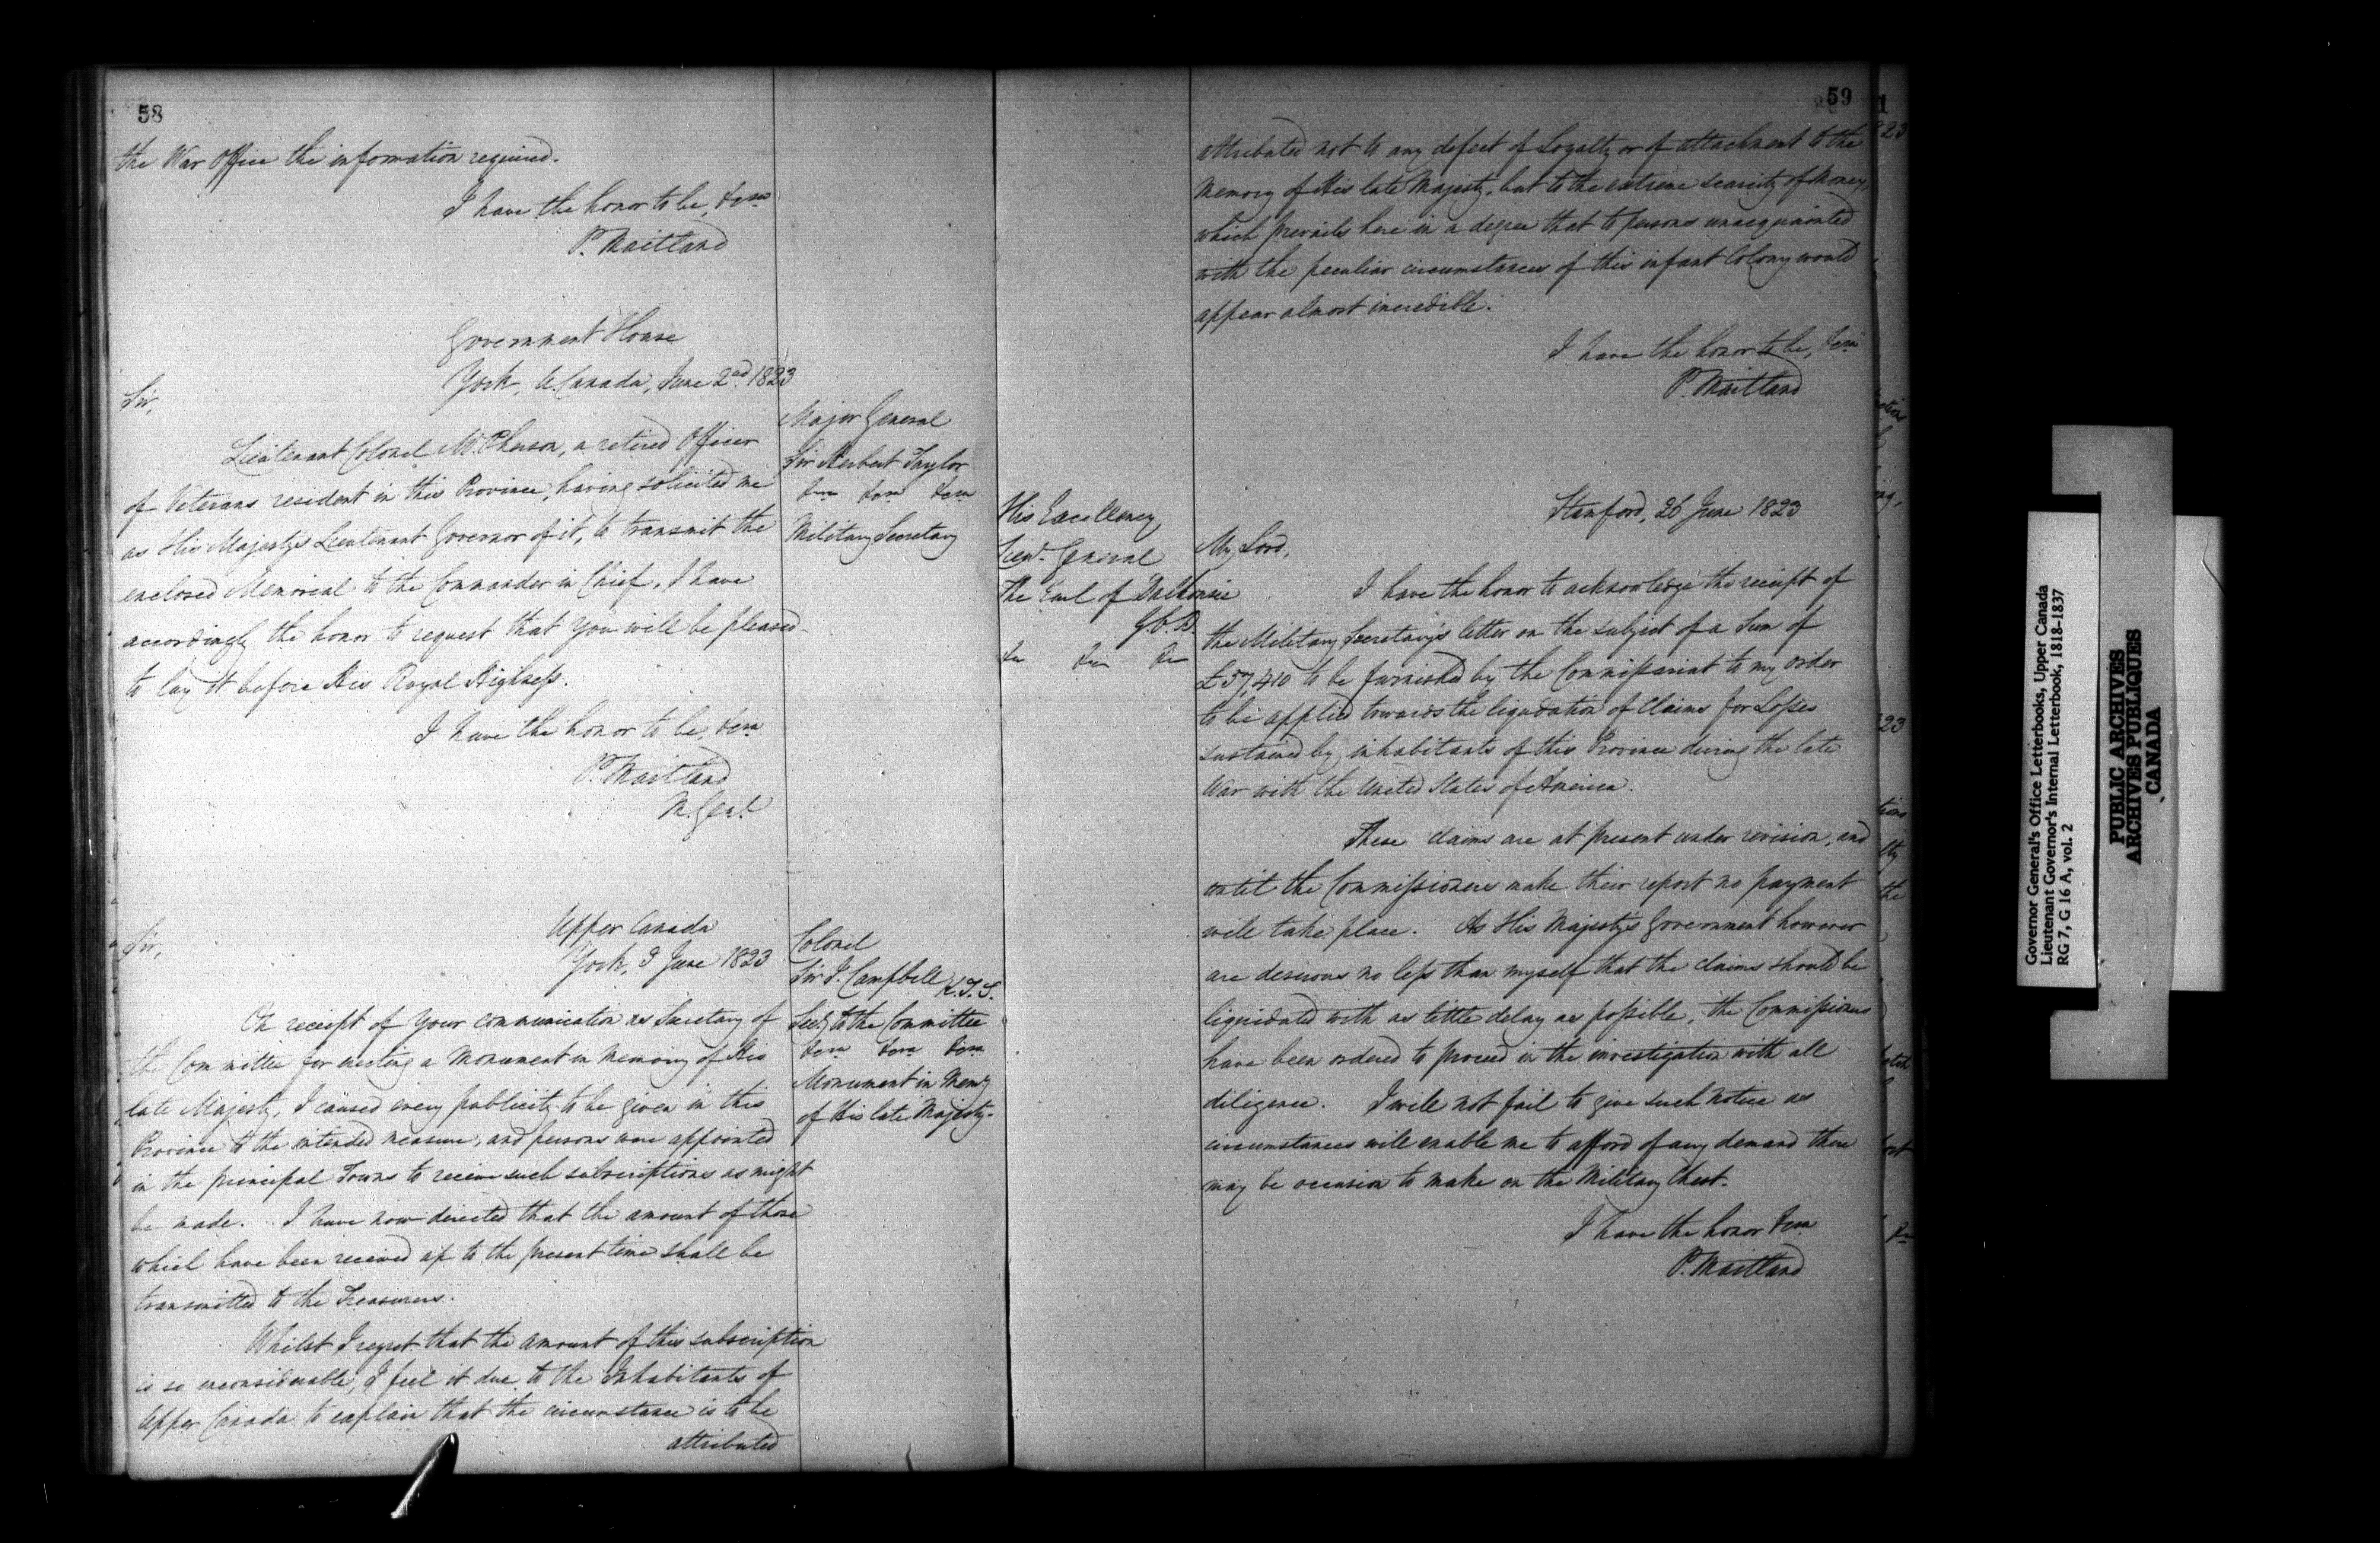 58
the War Office the information required.
I have the honor to be, &ca
P. Maitland
Government House
York, U. Canada, June 2nd 1823
Sir,
Major General
Sir Herbert Taylor
&ca &ca &ca
Military Secretary
Lieutenant Colonel McPherson, a retired Officer
of Veterans resident in this Province, having solicited me
as His Majesty's Lieutenant Governor of it, to transmit the
enclosed Memorial to the Commander in Chief, I have
accordingly the honor to request that you will be pleased
to lay it before His Royal Highness.
I have the honor to be, &ca
P. Maitland
M. Genl
Upper Canada
York, 3 June 1823
Sir,
Colonel
Sir I. Campbell K.T.S.
Secy to the Committee
&ca &ca &ca
Monument in Memy
of His late Majesty.
On receipt of your communication as Secretary of
the Committee for erecting a Monument in Memory of His
late Majesty, I caused every publicity to be given in this
Province to the intended measure, and persons were appointed
in the principal Towns to receive such subscriptions as might
be made. I have now directed that the amount of those
which have been received up to the present time shall be
transmitted to the Treasurers.
Whilst I regret that the amount of this subscription
is so inconsiderable, I feel it due to the Inhabitants of
Upper Canada to explain that the circumstance is to be
attributed
59
attributed not to any defect of Loyalty or of attachment to the
Memory of His late Majesty, but to the extreme scarcity of Money,
which prevails here in a degree that to persons unacquainted
with the peculiar circumstances of this infant Colony would
appear almost incredible.
I have the honor to be, &ca
P. Maitland
Stamford, 26 June 1823
His Excellency
Lieut. General
The Earl of Dalhousie
G.C.B.
&c &c &c
My Lord,
I have the honor to acknowledge the receipt of
the Military Secretary's letter on the subject of a Sum of
£57,410 to be furnished by the Commissariat to my order
to be applied towards the liquidation of Claims for Losses
sustained by inhabitants of this Province during the late
War with the United States of America.
These claims are at present under revision, and
until the Commissioners make their report no payment
will take place. As His Majesty's Government however
are desirous no less than myself that the claims should be
liquidated with as little delay as possible, the Commissioners
have been ordered to proceed in the investigation with all
diligence. I will not fail to give such notice as
circumstances will enable me to afford of any demand there
may be occasion to make on the Military Chest.
I have the honor &ca
P. Maitland
Governor General's Office Letterbooks, Upper Canada
Lieutenant Governor's Internal Letterbook, 1818-1837
RG 7, G 16 A, vol. 2
PUBLIC ARCHIVES
ARCHIVES PUBLIQUES
CANADA